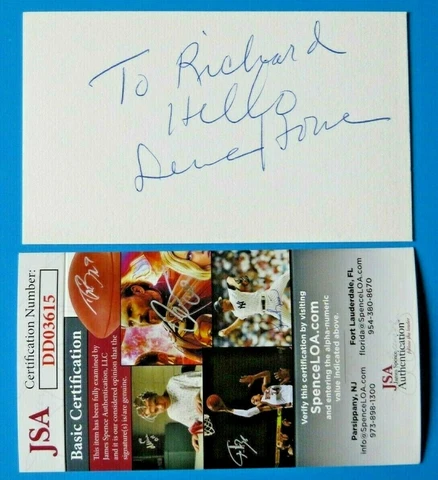 To Richard
Hello
JSA
Certification Number:
DD03615
Basic Certification
This item has been fully examined by
James Spence Authentication, LLC
and it is our considered opinion that the
signature(s) is/are genuine.
Verify this certification by visiting
SpenceLOA.com
and entering the alpha-numeric
value indicated above.
Parsippany, NJ
973-898-1300
Fort Lauderdale, FL
florida@SpenceLOA.com
954-380-8670
JSA
James Spence
Authentication